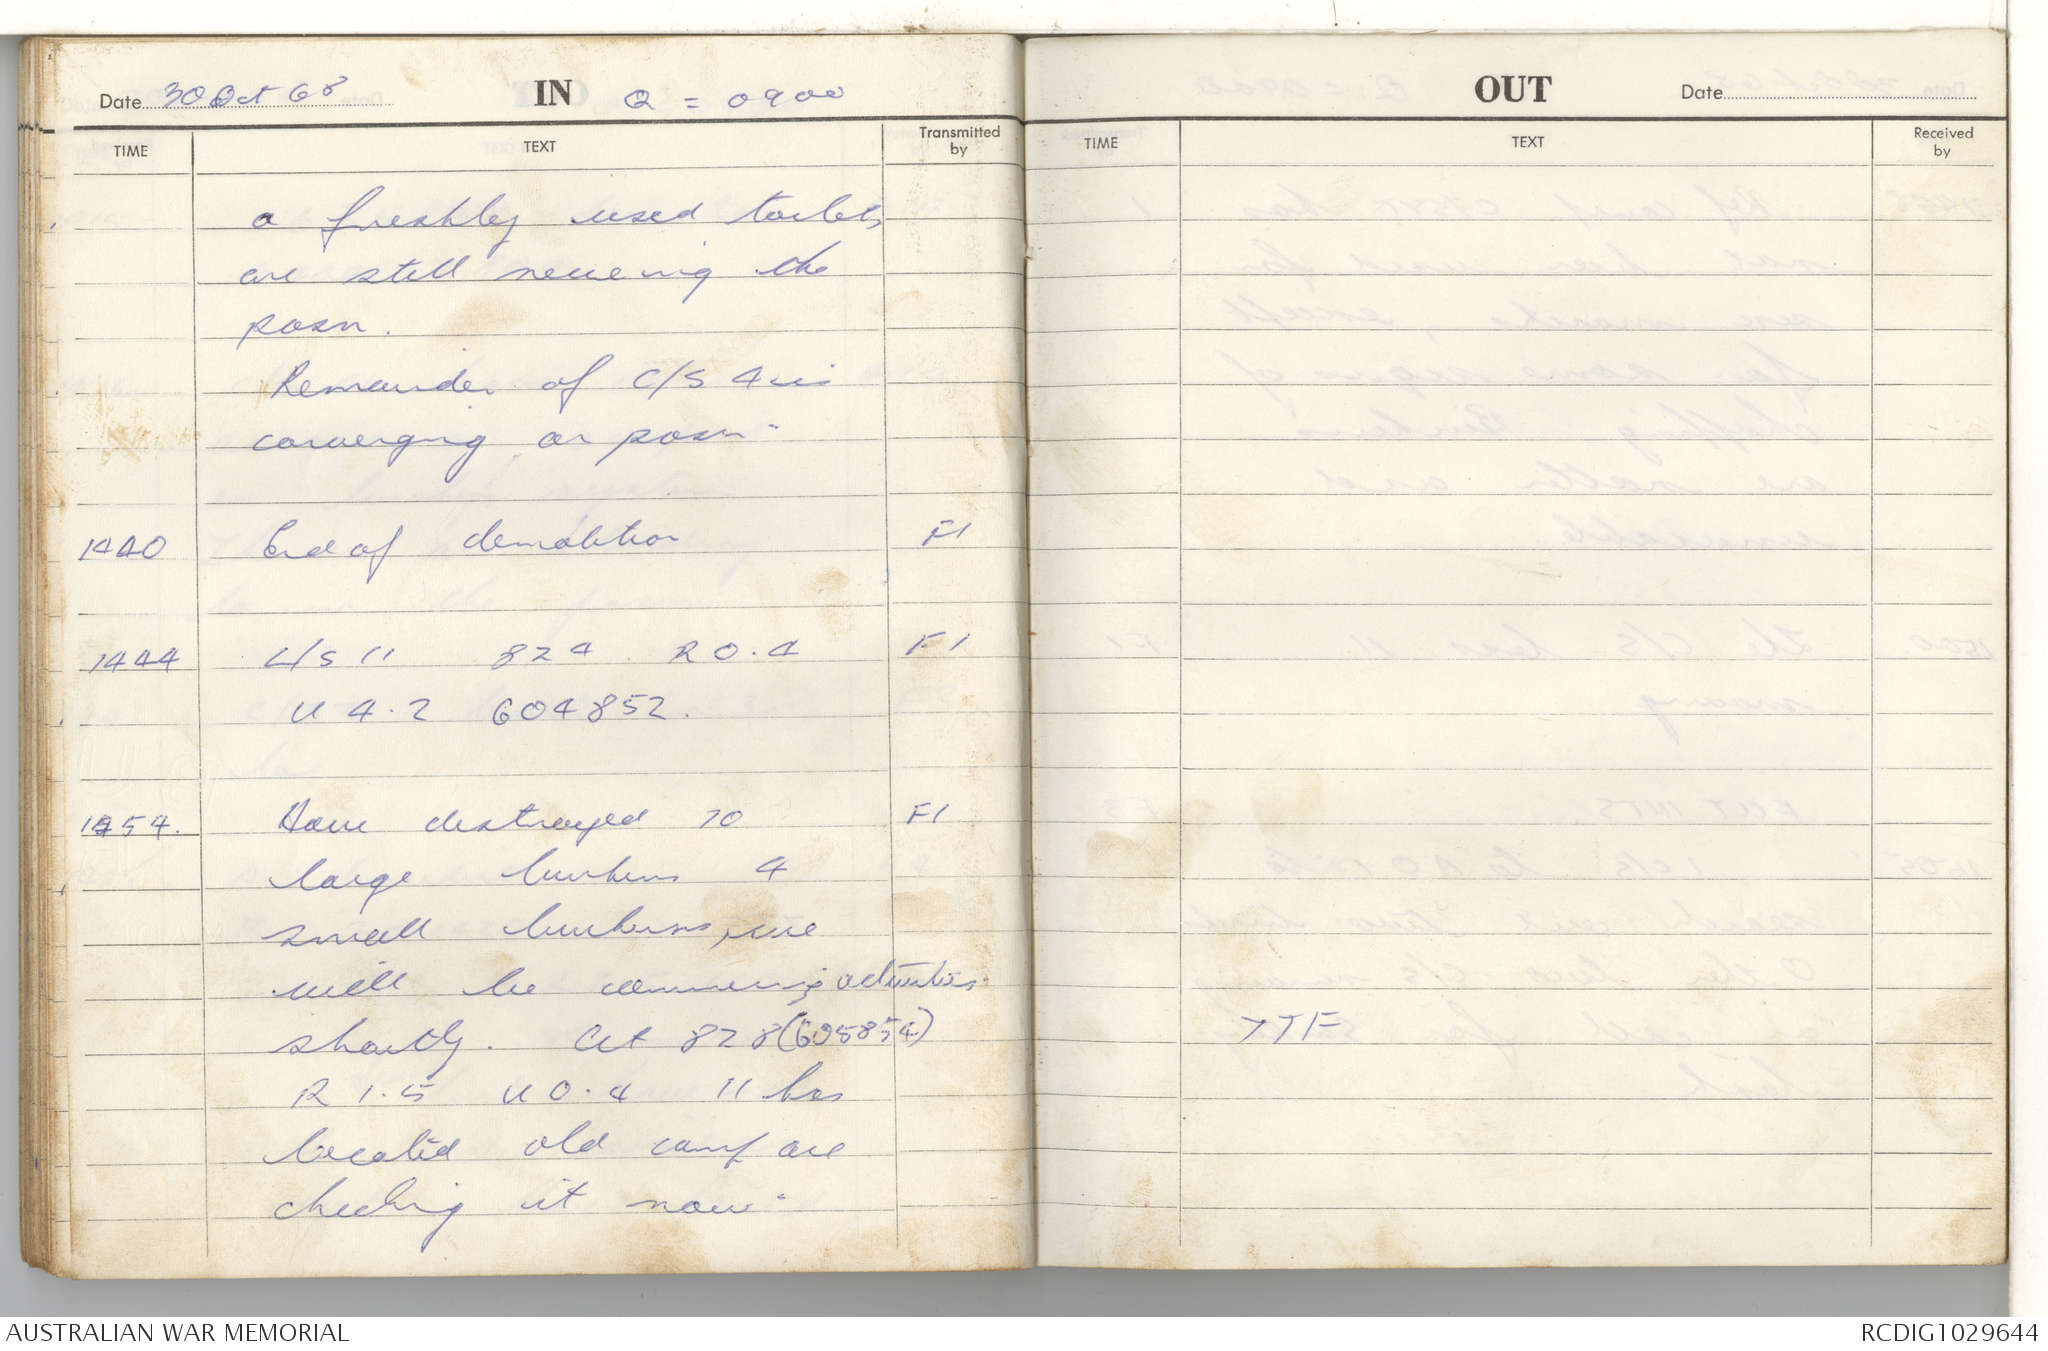 Date 30 Oct 68 IN Q = 0900
TIME TEXT Transmitted by
a freshly used toilet,
are still receeing the
posn.
Remainder of C/S 4 is
converging on posn.
1440 End of demolition F1
1444 C/S 11 824 R0.4 F1
U 4.2 604852.
1454. Have destroyed 10 F1
large bunkers 4
small bunkers, we
will be commencing activities
shortly. At 828 (605854)
R 1.5 U 0.4 11 has
located old camp are
checking it now.
OUT Date
TIME TEXT Received by
TTF
AUSTRALIAN WAR MEMORIAL
RCDIG1029644